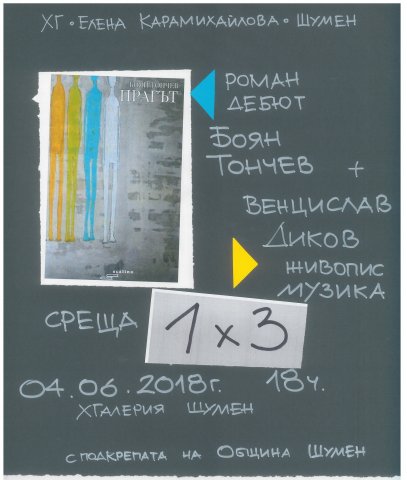 ХГ • Елена Карамихайлова • Шумен
РОМАН
ДЕБЮТ
БОЯН ТОНЧЕВ
ПРАГЪТ
Боян
Тончев +
Венцислав
Диков
живопис
музика
СРЕЩА
1 x 3
04.06.2018г. 18ч.
ХГАЛЕРИЯ ШУМЕН
с подкрепата на Община Шумен